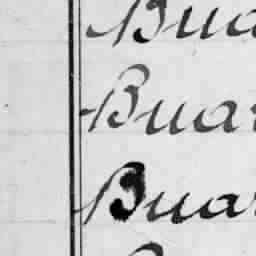 Bua
Buar
Buar